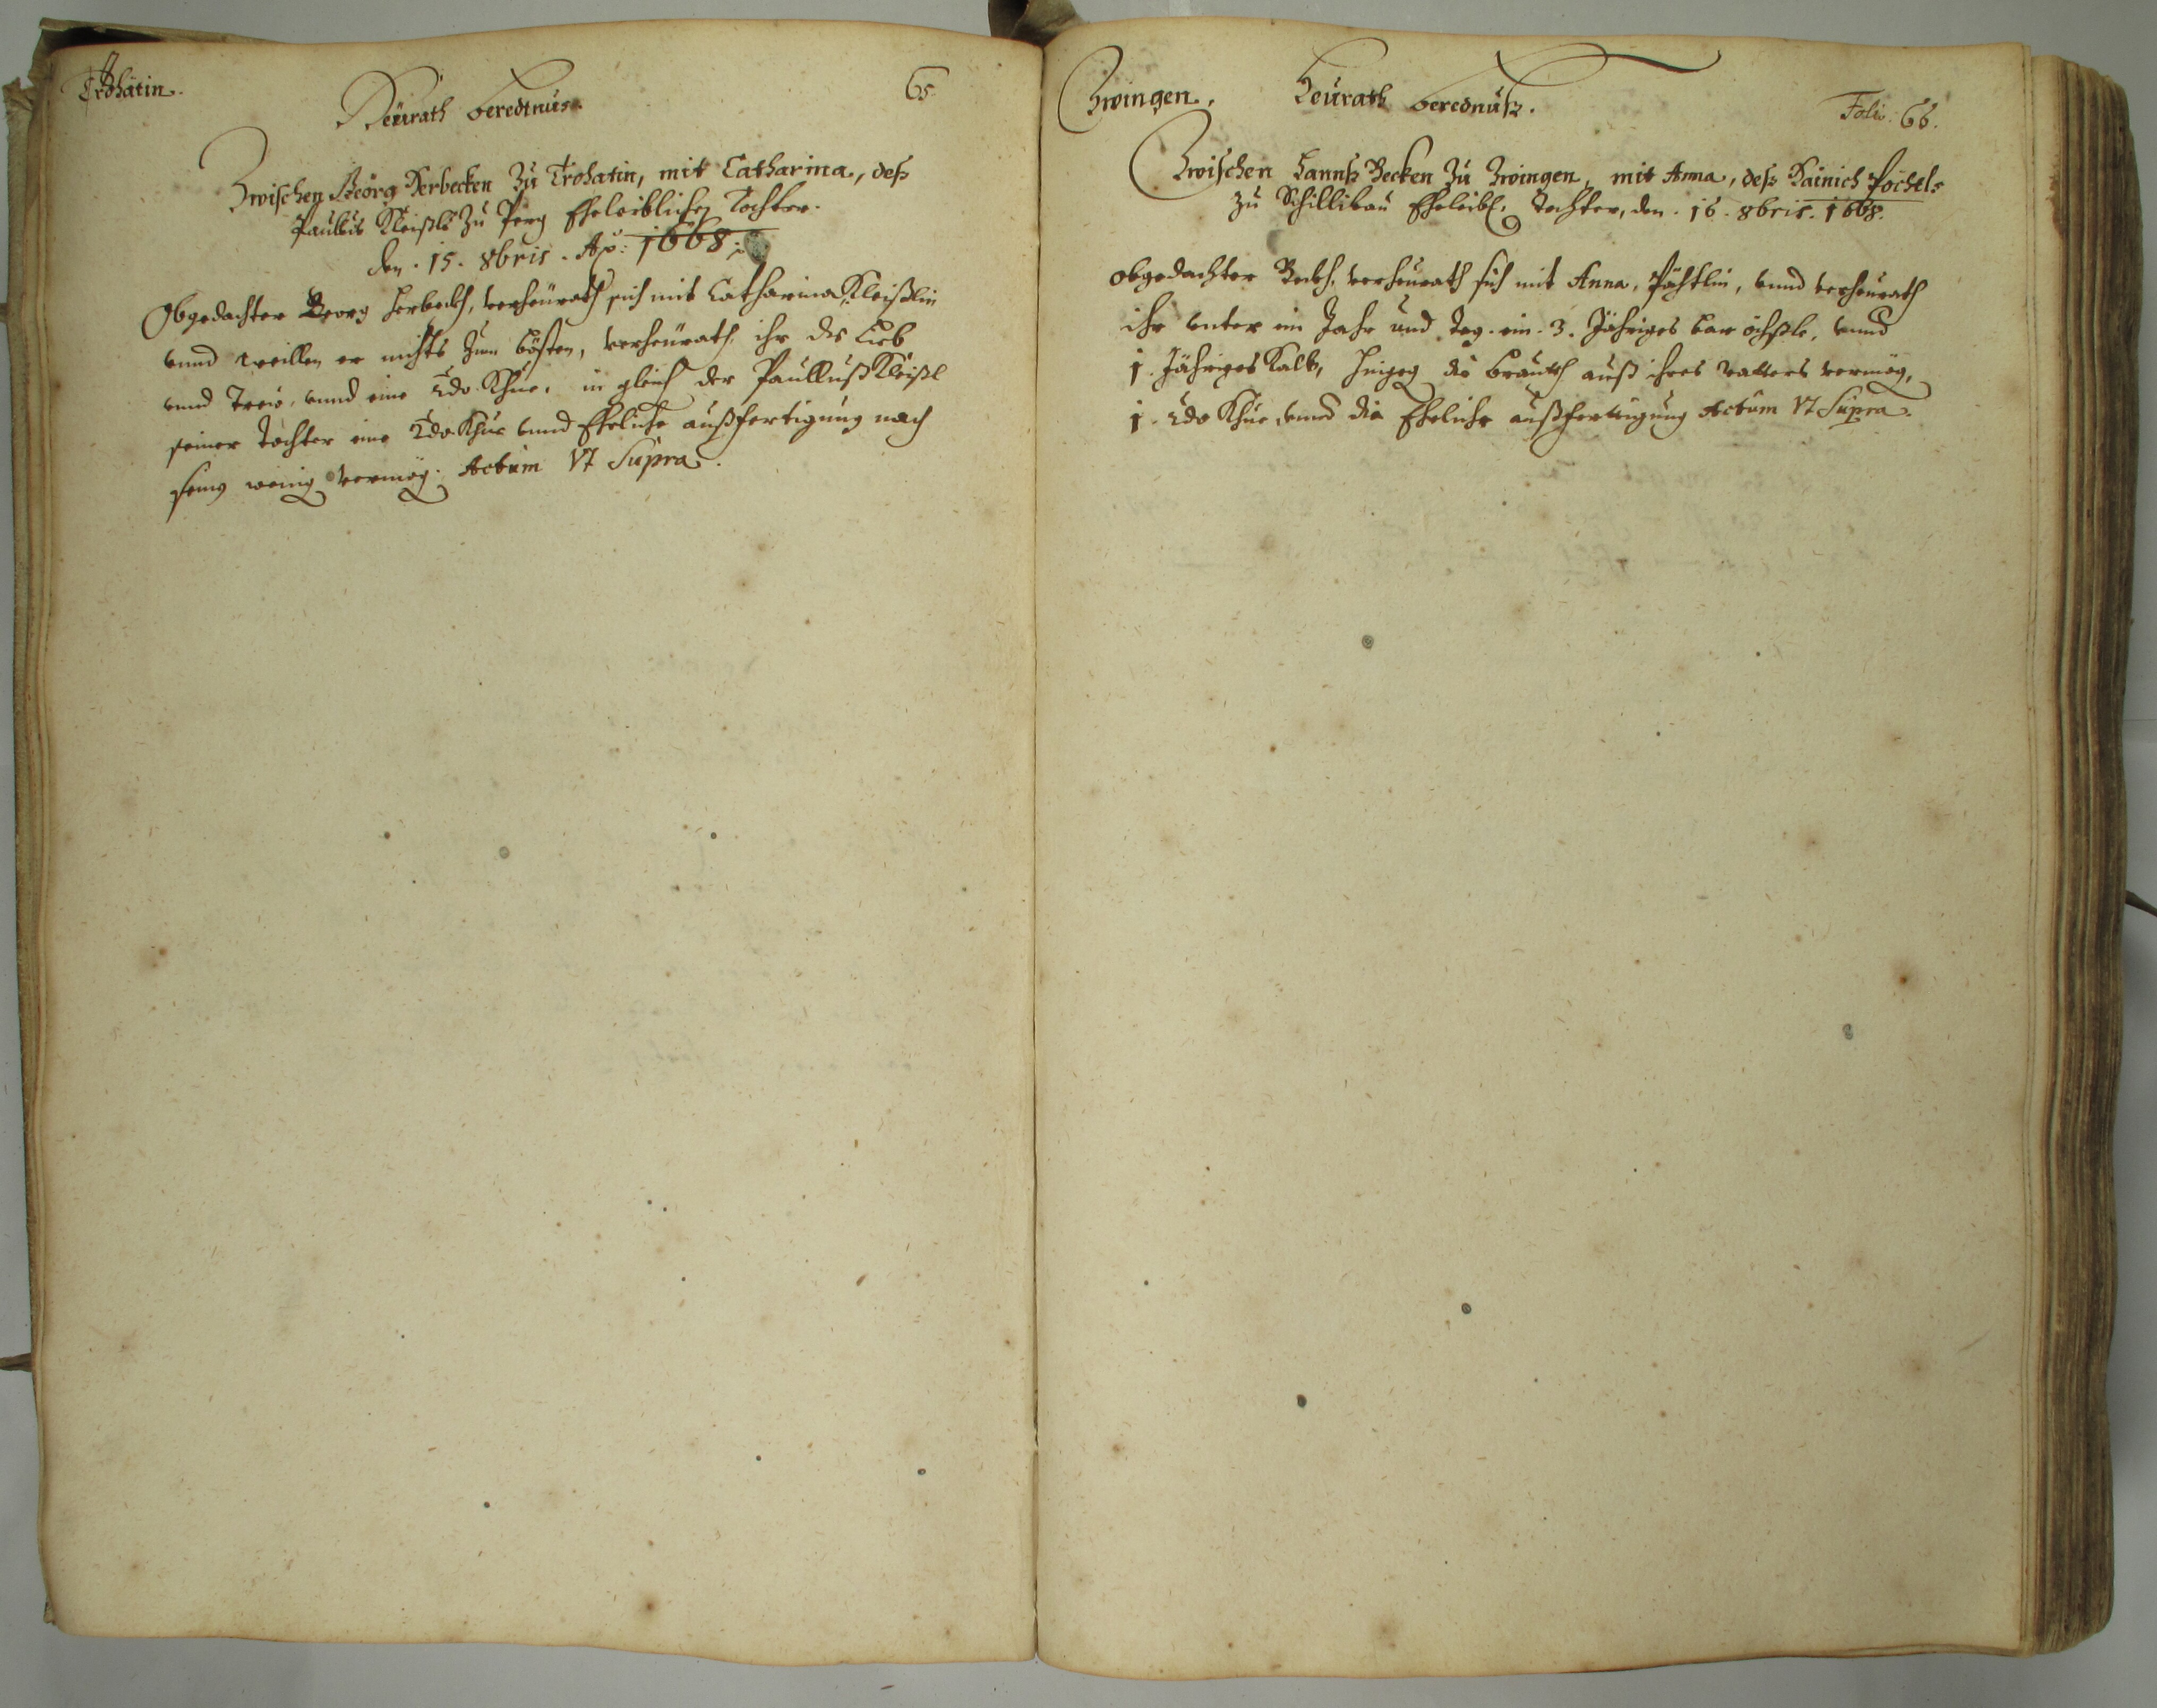 Trohatin.
65
Heürath beredtnus.
Zwischen Georg Herbecken zu Trohatin, mit Catharina, deß
Paulus Kleißls zu Perg Eheleiblichen Tochter.
den. 15. 8bris. Ao: 1668.
Obgedachter Georg Herbeckh, verheürath sich mit Catharina Kleißlin
vnnd weillen er nichts zum bösten, verheürath ihr die Lieb
vnnd Trew, vnnd eine Khue, in gleich der Paulluß Kleißl
seiner Tochter eine Khue vnnd Eheliche außfertigung nach
seinem wenig vermög: Actum Vt Supra.
Zwingen.
Heurath berednuß.
Folio. 66.
Zwischen Hannß Becken zu Zwingen, mit Anna, deß Hainich Pöchels
zu Schillikau Eheleibl: Tochter, den. 16. 8bris. 1668.
obgedachter Beckh, verheurath sich mit Anna, Pächtlin, vnnd verheurath
ihr vnter ein Jahr und Tag. ein. 3. Jähriges par öchßle, vnnd
1. Jähriges Kalb, hingeg die brauth auß ihres vatters vermög,
1. Khue vnnd die Eheliche außfertigung Actum Vt Supra.